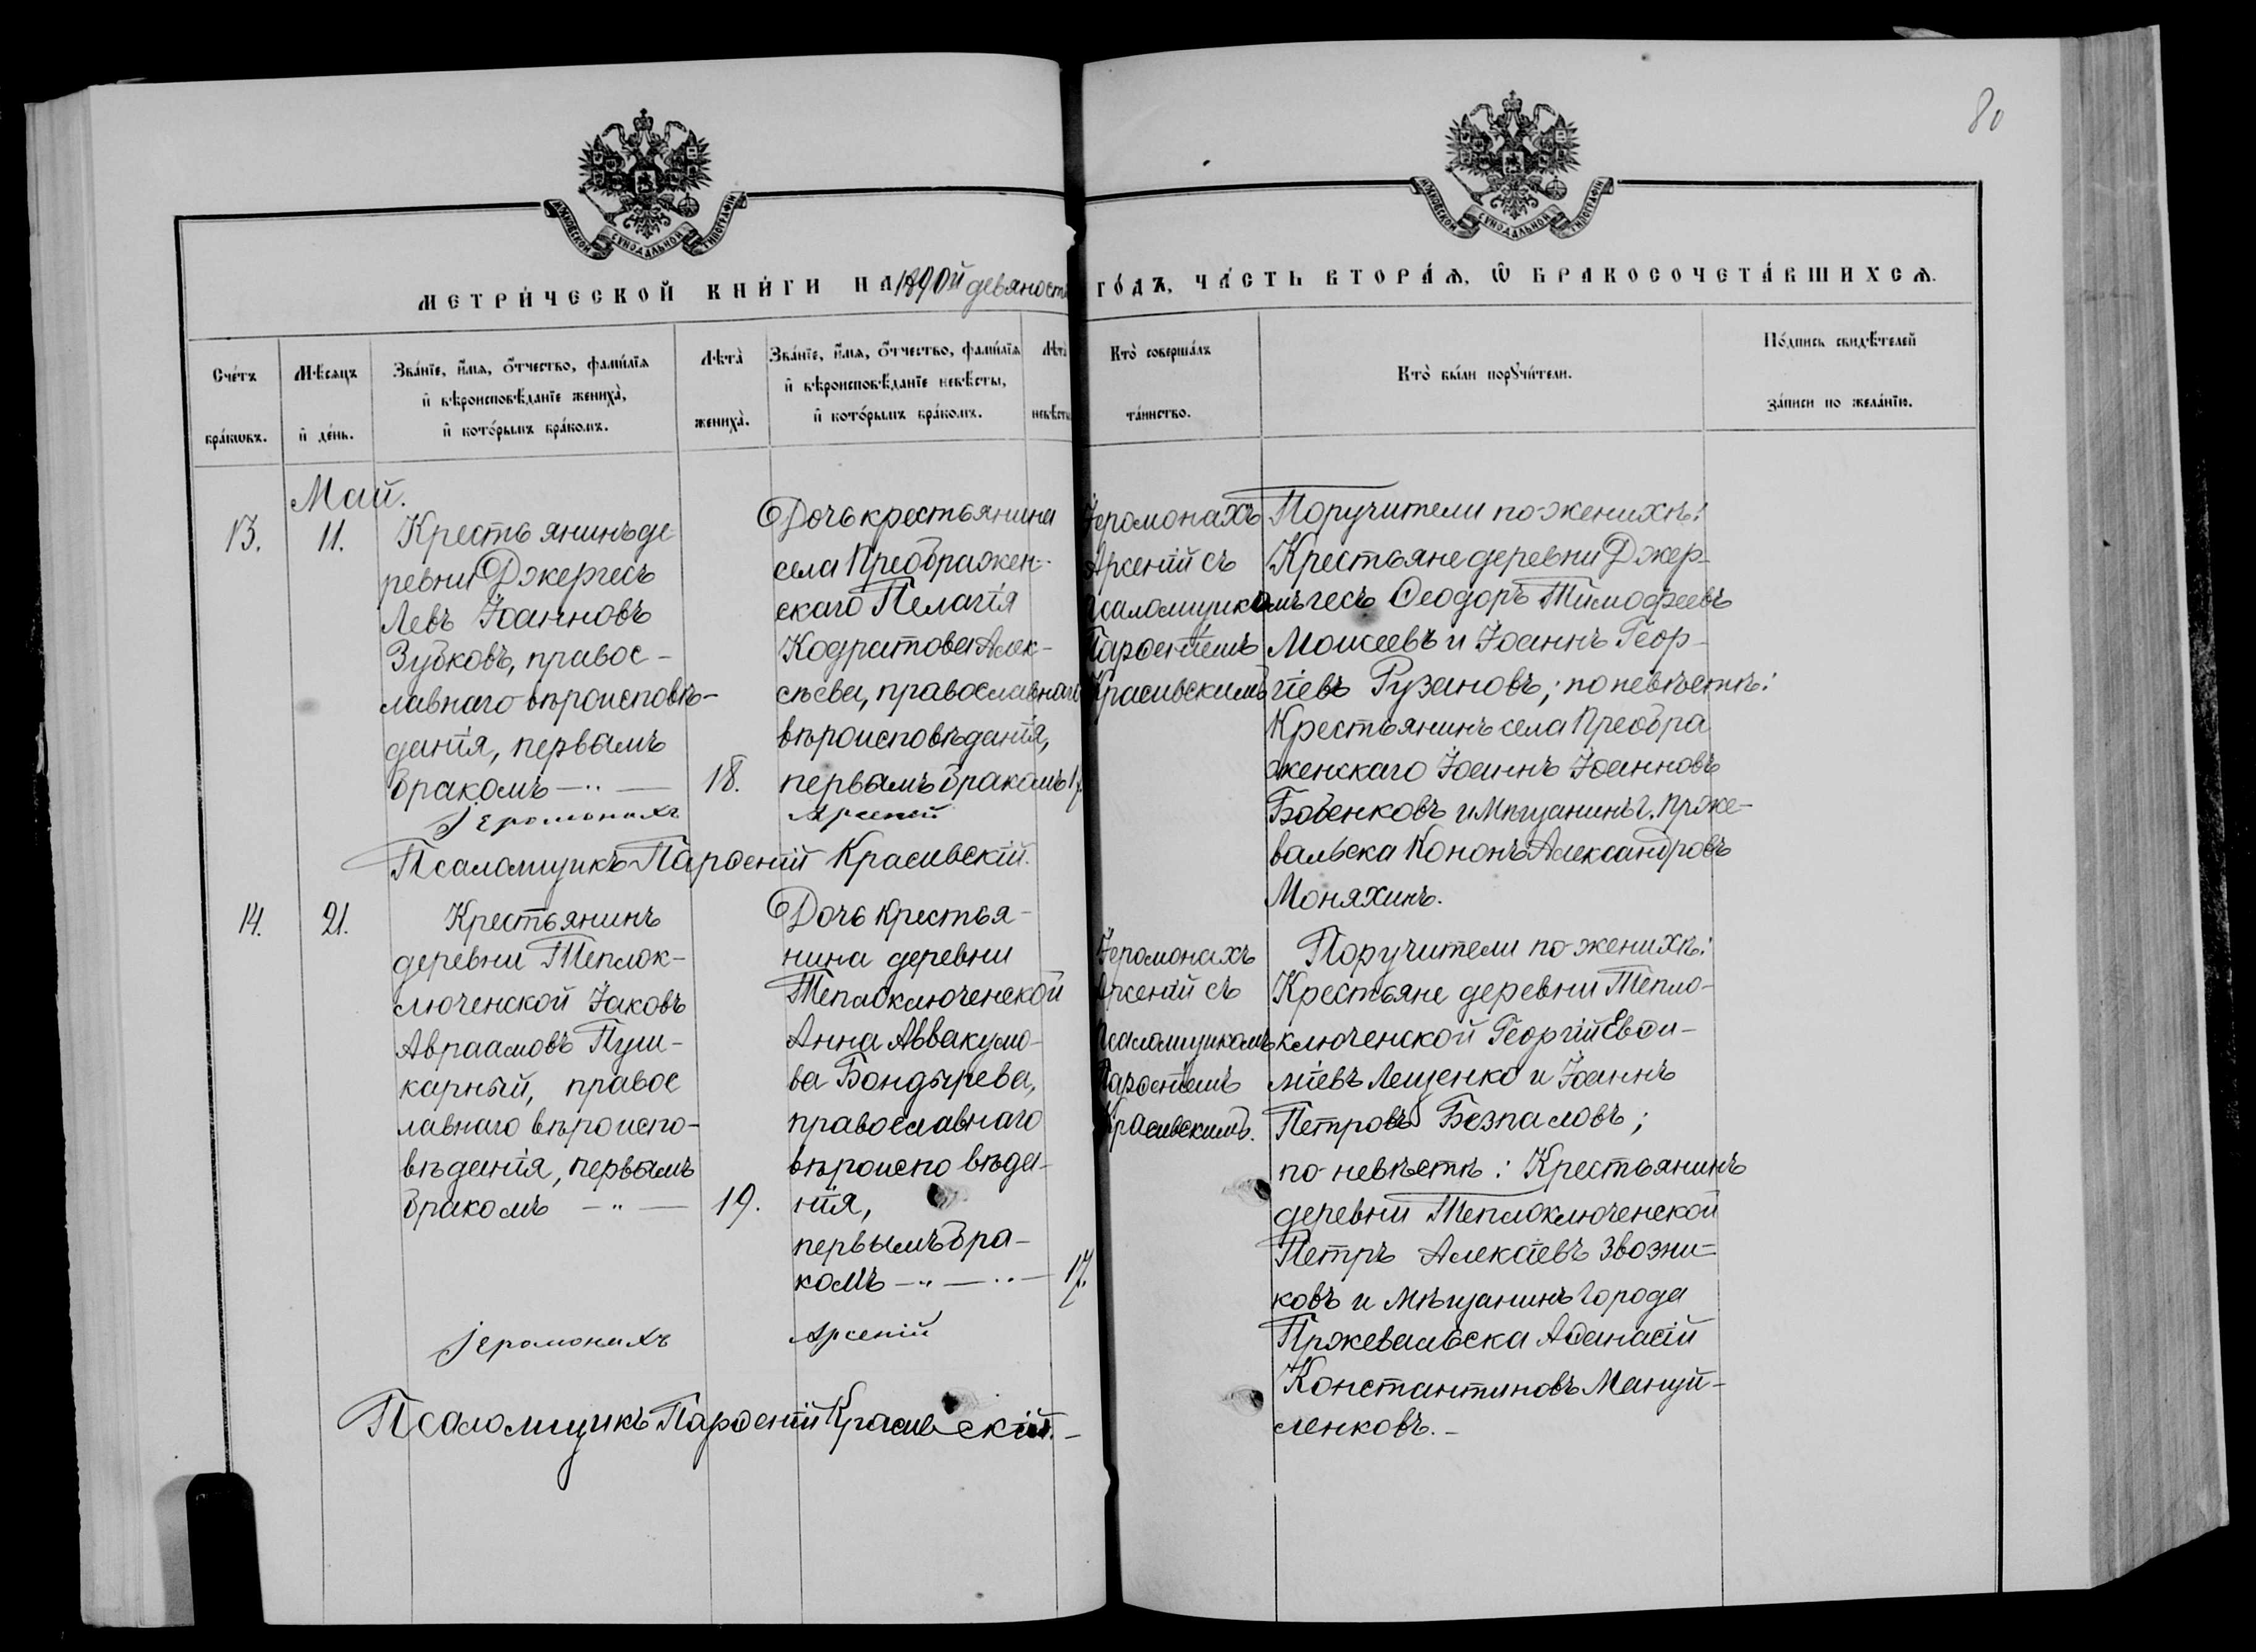 80
МОСКОВСКОЙ СУНОДАЛЬНОЙ ТИПОГРАФІИ
МОСКОВСКОЙ СУНОДАЛЬНОЙ ТИПОГРАФІИ
МЕТРИ́ЧЕСКОЙ КНИ́ГИ НА 1890й девяност
ГО́ДЪ, ЧА́СТЬ ВТОРА́Ѧ, Ѿ БРАКОСОЧЕТА́ВШИХСѦ.
Сче́тъ
бра́кωвъ.
Мѣ́сѧцъ
и҆ де́нь.
Зва́нїе, и҆́мѧ, ѻ҆́тчество, фамѝлїѧ
и҆ вѣроисповѣ́данїе жениха̀,
и҆ кото́рымъ бра́комъ.
Лѣта̀
жениха̀.
Зва́нїе, и҆́мѧ, ѻ҆́тчество, фамѝлїѧ
и҆ вѣроисповѣ́данїе невѣ́сты,
и҆ кото́рымъ бра́комъ.
Лѣта̀
невѣ́сты
Кто̀ соверша́лъ
та́инство.
Кто̀ бы́ли порꙋчи́тели.
По́дпись свидѣ́телей
за́писи по жела́нїю.
Май.
13.
11.
Крестьянинъ де
ревни Джергесъ
Левъ Іоанновъ
Зубковъ, правос-
лавнаго вѣроисповѣ-
данія, первымъ
бракомъ -„-
18.
Дочь крестьянина
села Преображен-
скаго Пелагія
Кодратова Алек-
сѣева, православнаго
вѣроисповѣданія,
первымъ бракомъ 17.
Іеромонахъ Арсеній
Псаломщикъ Парѳеній Красивскій.
Іеромонахъ
Арсеній съ
Псаломщикомъ
Парѳеніемъ
Красивскимъ
Поручители по женихѣ:
Крестьяне деревни Джер-
гесъ Ѳеодоръ Тимофеевъ
Моисеевъ и Іоаннъ Геор-
гіевъ Рузановъ; по невѣстѣ:
Крестьянинъ села Преобра
женскаго Іоаннъ Іоанновъ
Бовенковъ и Мѣщанинъ г. Прже-
вальска Кононъ Александровъ
Моняхинъ.
14.
21.
Крестьянинъ
деревни Теплок-
люченской Іаковъ
Авраамовъ Пуш-
карный, правос
лавнаго вѣроиспо-
вѣданія, первымъ
бракомъ -„-
19.
Дочь Крестья-
нина деревни
Теплоключенской
Анна Аввакумо-
ва Бондырева,
православнаго
вѣроисповѣда-
нія,
первымъ бра-
комъ -„-„- 17.
Іеромонахъ Арсеній
Псаломщикъ Парѳеній Красивскій.-
Іеромонахъ
Арсеній съ
Псаломщикомъ
Парѳеніемъ
Красивскимъ.
Поручители по женихѣ:
Крестьяне деревни Тепло-
ключенской Георгій Евѳи-
міевъ Лещенко и Іоаннъ
Петровъ Безпаловъ;
по невѣстѣ: Крестьянинъ
деревни Теплоключенской
Петръ Алексіевъ Звозни=
ковъ и Мѣщанинъ города
Пржевальска Аѳанасій
Константиновъ Мануй-
ленковъ.-